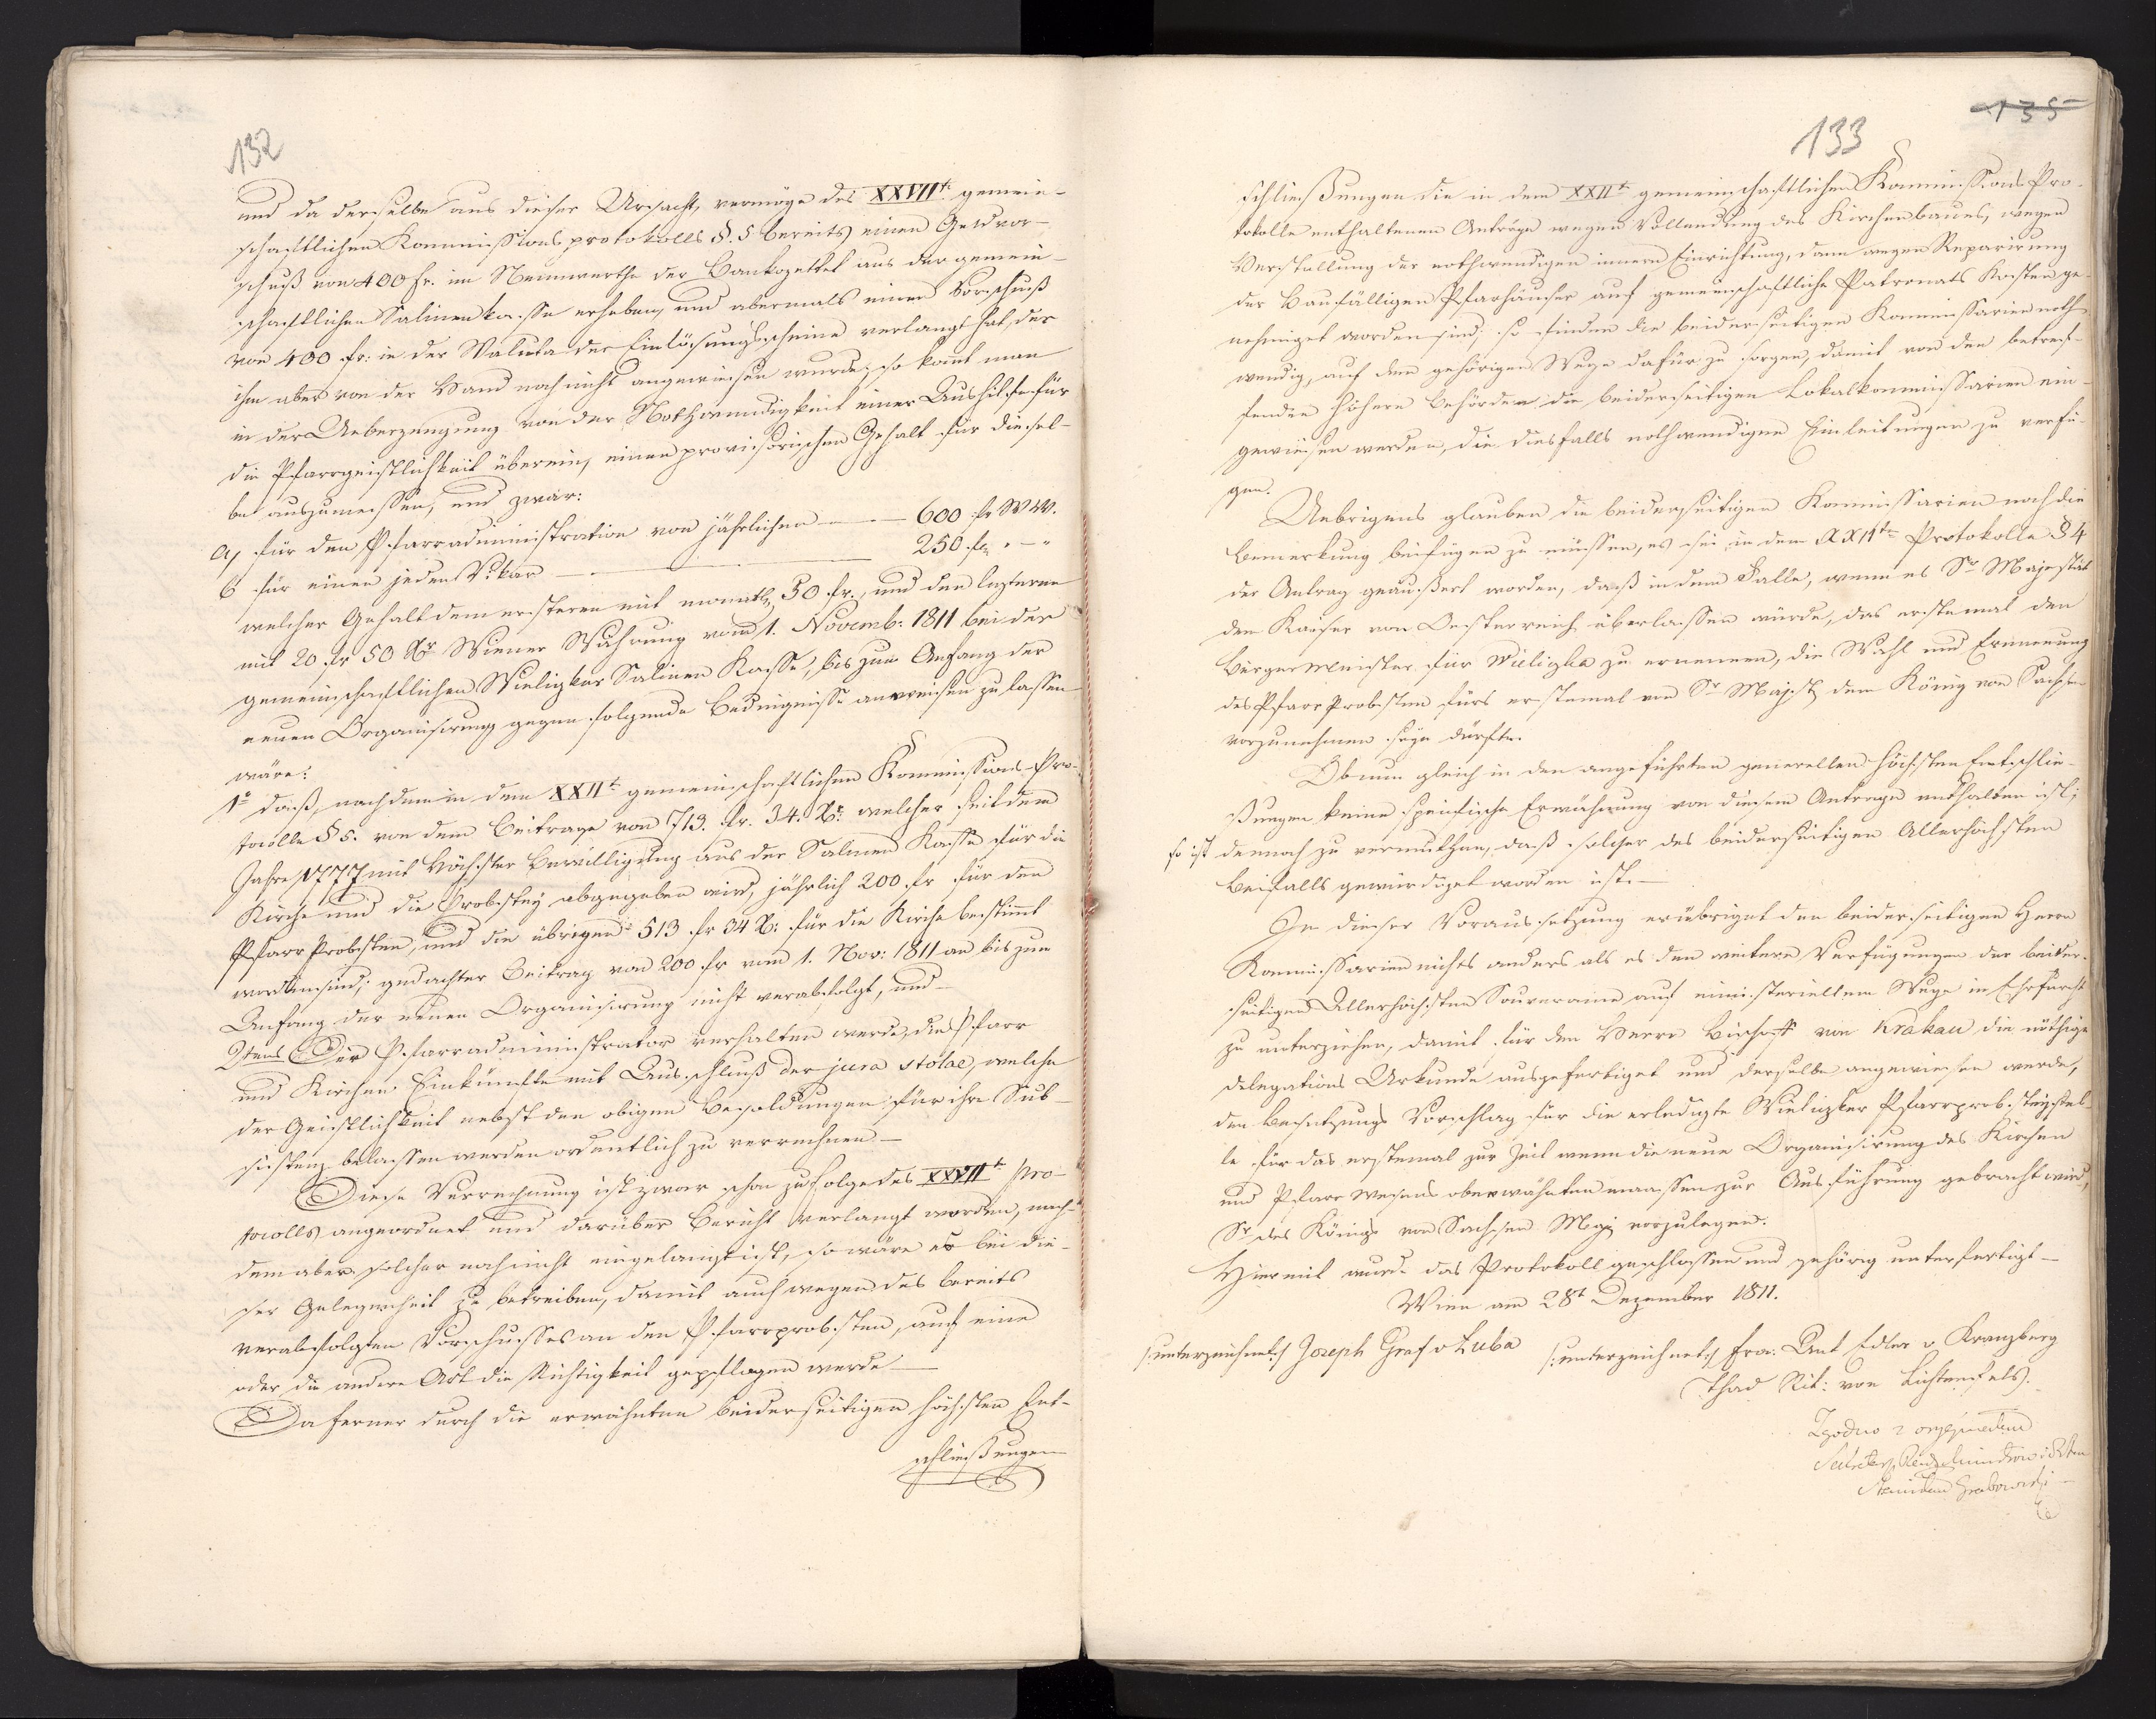 132
und da derselbe aus dieser Ursache, vermöge des XXVIIt. gemein-
schaftlichen Kommissions protokolls §. 5 bereits einen Geldvor-
schuß von 400 fr. im Nennwerthe der Bankozettel aus der gemein-
schaftlichen Salinenkasse erhoben, und abermals einen Vorschuß
von 400 fr: in der Valuta der Einlösungsscheine verlangt hat, der
ihm aber von der Hand noch nicht angewiesen wurde; so kömt man
in der Ueberzeugung von der Nothwendigkeit einer Aushilfe für
die Pfarrgeistlichkeit überein, einen provisorischen Gehalt für diesel-
be auszumessen, und zwar:
a, für den Pfarradministration von jährlichen — 600 fr WW.
b für einen jeden Vikar — 250 fr " — "
welcher Gehalt dem ersteren mit monatl. 50 fr., und den lezteren
mit 20 fr 50 Xr Wiener Währung vom 1. Novemb: 1811 bei der
gemeinschaftlichen Wieliczker Salinen Kasse, bis zum Anfang der
neuen Organisirung gegen folgende Bedingnisse anweisen zu lassen
wäre:
1o daß, nachdem in dem XXIIt. gemeinschaftlichen Kommissions-Pro-
tocolle § 5. von dem Beitrage von 713. fr. 34. Xr. welcher seit dem
Jahre 1777 mit höchster Bewilligung aus der Salinen Kasse für die
Kirche und die Probstey abgegeben wird, jährlich 200 fr für den
Pfarr Probsten, und die übrigen 513 fr 34 X: für die Kirche bestimt
worden sind; gedachter Beitrag von 200 fr vom 1. Nov: 1811 an bis zum
Anfang der neuen Organisirung nicht verabfolgt, und
2tens Der Pfarradministrator verhalten werde, die Pfarr
und Kirchen Einkünfte mit Ausschluß der jura stolae, welche
der Geistlichkeit nebst den obigen Besoldungen für ihre Sub-
sistenz belassen werden ordentlich zu verrechnen —
Diese Verrechnung ist zwar schon zufolge des XXVIIt. Pro-
tocolls angeordnet und darüber Bericht verlangt worden, nach-
dem aber solcher noch nicht eingelangt ist, so wäre er bei die-
ser Gelegenheit zu betreiben, damit auch wegen des bereits
verabfolgten Vorschusses an den Pfarrprobsten, auf eine
oder die andere Art die Richtigkeit gepflogen werde —
Da ferner durch die erwähnten beiderseitigen höchsten Ent-
schließungen
135
133
schließungen die in dem XXIIt. gemeinschaftlichen Kommissions Pro-
tokolle enthaltenen Anträge wegen Vollendung des Kirchenbaues, wegen
Herstellung der nothwendigen innern Einrichtung, dann wegen Reparirung
der Baufälligen Pfarhäuser auf gemeinschaftliche Patronats Kosten ge-
nehmiget worden sind; so finden die beiderseitigen Kommissarien noth-
wendig, auf dem gehörigen Wege dafür zu sorgen, damit von den betref-
fenden höhern Behörden die beiderseitigen Lokalkommissarien ein-
gewiesen werden, die diesfalls nothwendigen Einleitungen zu verfü-
gen.
Uebrigens glauben die beiderseitigen Kommissarien noch die
Bemerkung beifügen zu müssen, es sei in dem XXIIten Protokolle § 4
der Antrag geäußert worden, daß in dem Falle, wenn es Sr Majestät
dem Kaiser von Oesterreich überlassen würde, das erstemal den
Bürgermeister für Wieliczka zu ernennen, die Wahl und Ernennung
des Pfarr Probsten fürs erstemal von Sr Majest. dem König von Sachsen
vorzunehmen seyn dürfte.
Ob nun gleich in den angeführten generellen höchsten Entschlie-
ßungen keine spezifische Erwähnung von diesem Antrage enthalten ist;
so ist dennoch zu vermuthen, daß solcher des beiderseitigen Allerhöchsten
Beifalls gewürdiget worden ist. —
In dieser Voraussetzung erübriget den beiderseitigen Herrn
Kommissarien nichts anders als es den weitern Verfügungen der beider-
seitigen Allerhöchsten Souveraine auf ministeriellem Wege in Ehrfurcht
zu unterziehen, damit für den Herrn Bischoff von Krakau die nöthige
delegations Urkunde ausgefertiget und derselbe angewiesen werde,
den Besetzungs Vorschlag für die erledigte Wieliczker Pfarrprobsteystel-
le für das erstemal zur Zeit wenn die neue Organisirung des Kirchen
und Pfarr Wesens oberwähntermaassen zur Ausführung gebracht wird,
Sr des Königs von Sachsen Maj. vorzulegen.
Hiermit wurde das Protokoll geschlossen und gehörig unterfertigt —
Wien am 28t Dezember 1811.
/:unterzeichnet:/ Joseph Graf v Luba /:unterzeichnet:/ Fra: Ant Edler v Kranzberg
Thad Rit: von Lichtenfels.
Zgodno z oryginałem
Sekretarz Rady Ministrow i Stanu
Stanisław Grabowski